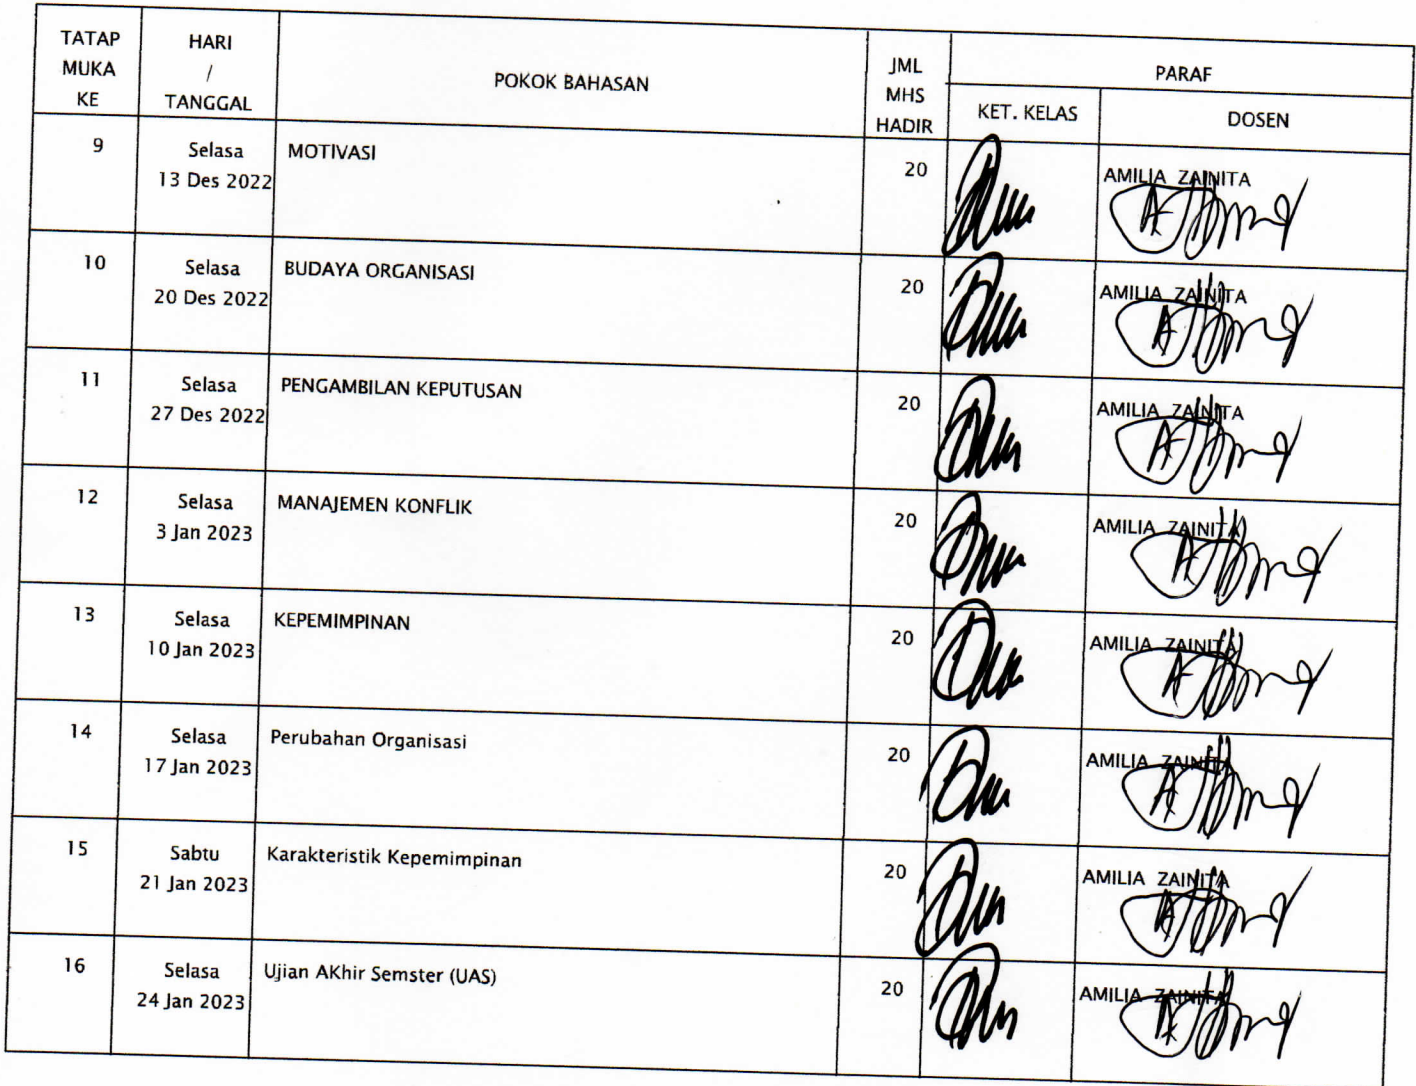 TATAP
MUKA
KE
HARI
/
TANGGAL
POKOK BAHASAN
JML
MHS
HADIR
PARAF
KET. KELAS
DOSEN
9
Selasa
13 Des 2022
MOTIVASI
20
AMILIA ZAINITA
10
Selasa
20 Des 2022
BUDAYA ORGANISASI
20
AMILIA ZAINITA
11
Selasa
27 Des 2022
PENGAMBILAN KEPUTUSAN
20
AMILIA ZAINITA
12
Selasa
3 Jan 2023
MANAJEMEN KONFLIK
20
AMILIA ZAINITA
13
Selasa
10 Jan 2023
KEPEMIMPINAN
20
AMILIA ZAINITA
14
Selasa
17 Jan 2023
Perubahan Organisasi
20
AMILIA ZAINITA
15
Sabtu
21 Jan 2023
Karakteristik Kepemimpinan
20
AMILIA ZAINITA
16
Selasa
24 Jan 2023
Ujian AKhir Semster (UAS)
20
AMILIA ZAINITA